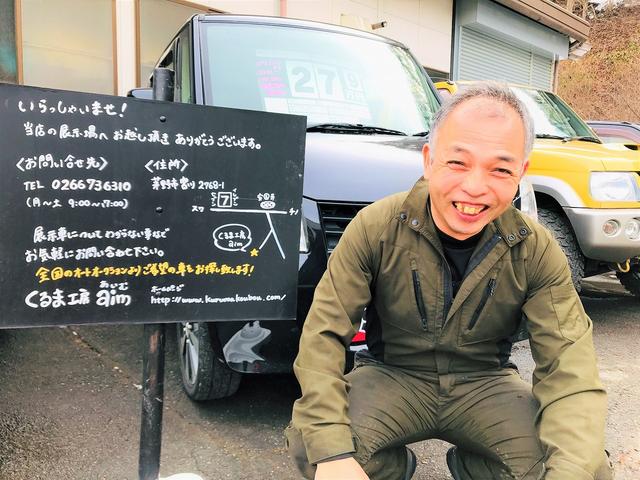 いらっしゃいませ!
当店の展示場へ お越し頂き ありがとうございます。
〈お問い合せ先〉 〈住所〉
TEL 0266736310 茅野市宮川2768-1
(月〜土 9:00〜17:00)
7
スワ
チノ
くるま工房
aim
展示車について わからない事など
お気軽にお問い合わせ下さい。
全国のオートオークションよりご希望の車をお探し致します!
あいむ
くるま工房 aim
ホームページ
http://www.kurumakoubou.com/
279